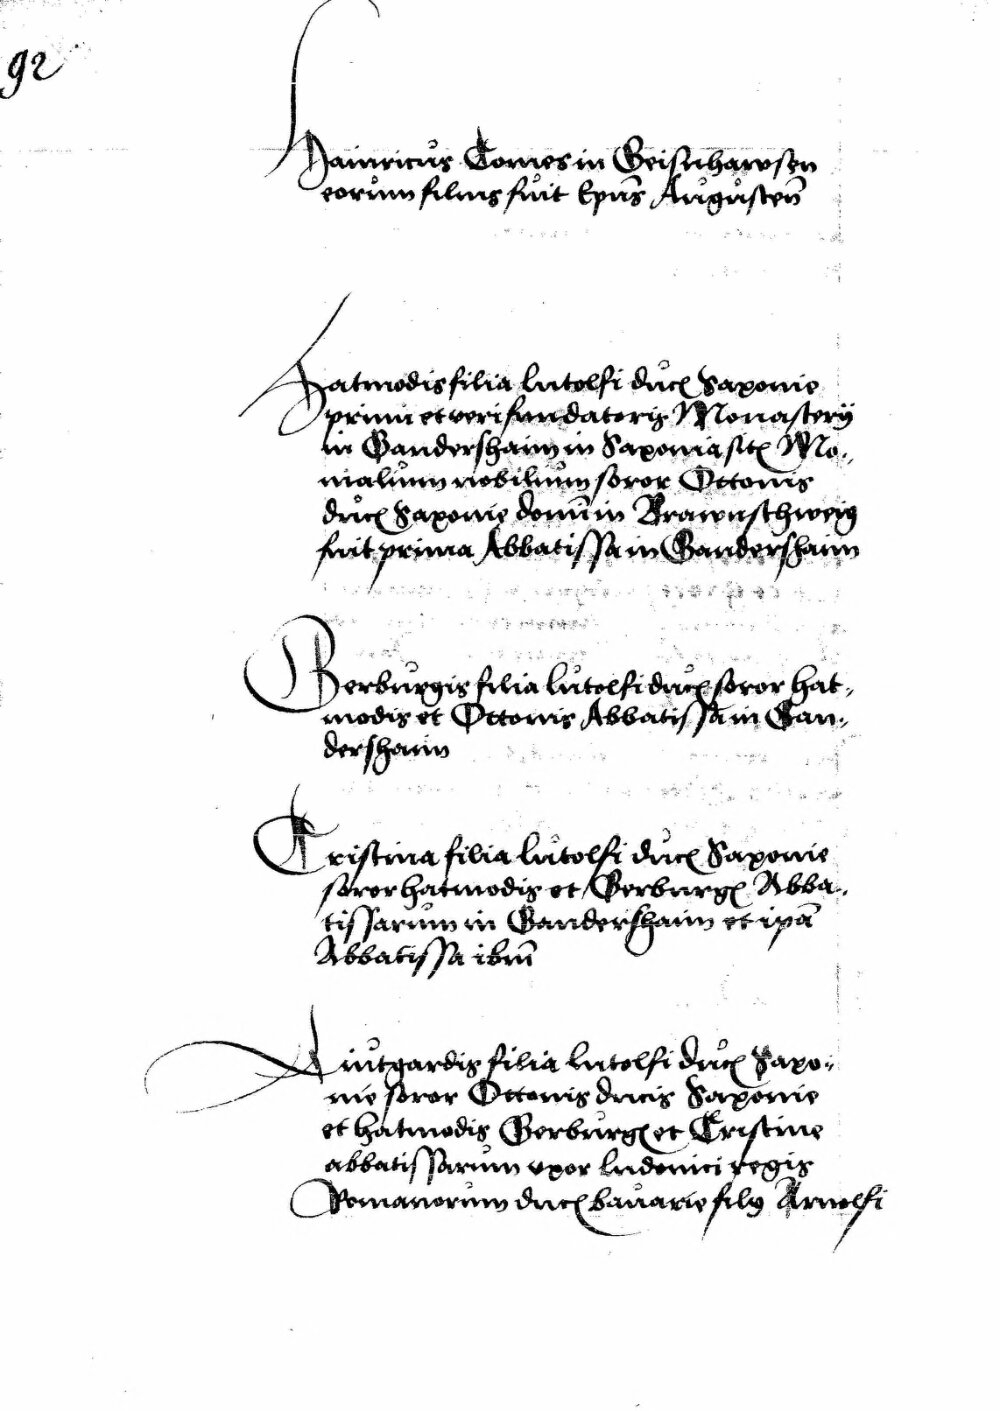 92
Hainricus Comes in Geisnhawsen
eorum filius fuit Epūs Augusteñ
Hatmodis filia lutolfi duc Saxonie
primi et veri fundatoris Monasterij
in Gandershaim in Saxonia sit Mo,,
nialium nobilium soror Ottonis
duc Saxonie domī in Brawnschweig
fuit prima Abbatissa in Gandershaim
Gerburgis filia lutolfi duc soror hat,,
modis et Ottonis Abbatissa in Gan,,
dershaim
Cristina filia lutolfi duc Saxonie
soror hatmodis et Gerburg Abba,,
tissarum in Gandershaim et ipā
Abbatissa ibm̄
Liutgardis filia lutolfi duc Saxo,,
nie soror Ottonis ducis Saxonie
et hatmodis Gerburg et Cristine
abbatissarum vxor ludouici regis
Romanorum duc bauarie filij Arnolfi